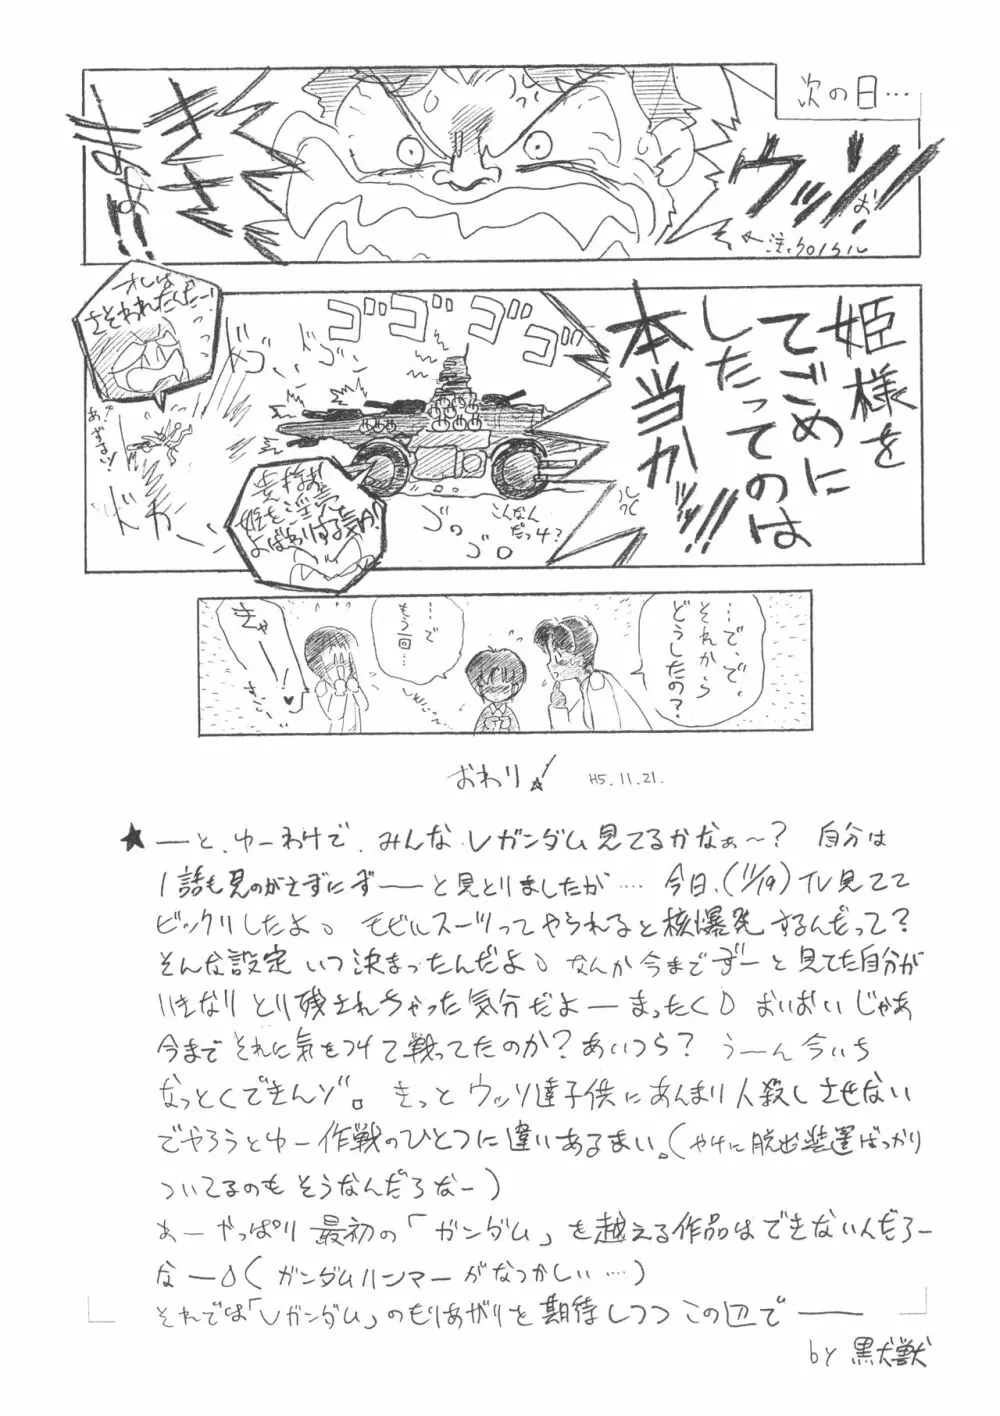 次の日…
ウッソ
きさまぁぁ!!
注:クロノクル
姫様を
てごめに
したってのは
本当かッ!!
オレは
さそわれたんだー!
ゴゴゴゴ
ドゴ
ドカ
あ?
貴様ぁ
姫を淫売
よばわりする気か!
ゴロゴロ
こんなん
だっけ?
…で、で、
それから
どうしたの?
…で
もう一回…
きゃーー!
おわり! H5.11.21.
★ ーと、ゆーわけで、みんなVガンダム見てるかなぁ〜? 自分は
1話も見のがさずにずーーと見とりましたが…. 今日、(11/19)TV見てて
ビックリしたよ。 モビルスーツってやられると核爆発するんだって?
そんな設定いつ決まったんだよ。なんか今までずーと見てた自分が
いきなりとり残されちゃった気分だよーまったく。 おいおいじゃあ
今までそれに気をつけて戦ってたのか?あいつら? うーん今いち
なっとくできんゾ。 きっとウッソ達子供にあんまり人殺しさせない
でやろうとゆー作戦のひとつに違いあるまい。(やけに脱出装置ばっかり
ついてるのもそうなんだろなー)
あーやっぱり最初の「ガンダム」を越える作品はできないんだろー
なー。(ガンダムハンマーがなつかしい…)
それでは「Vガンダム」のもりあがりを期待しつつこの辺でーー
by 黒犬獣